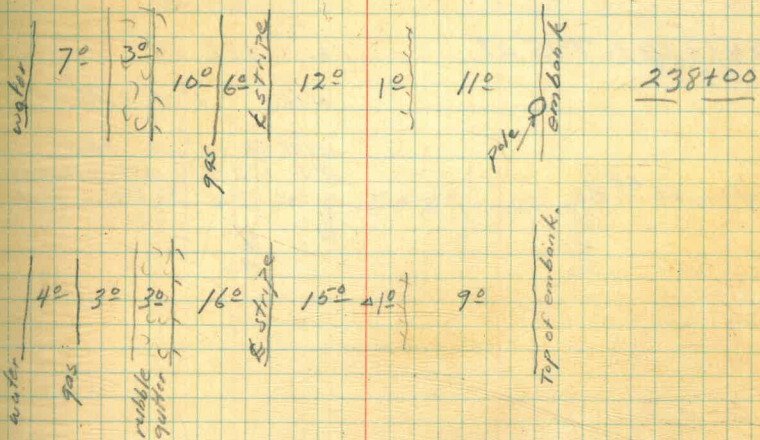 water 7º 3º 10º gas 6º ⅊ stripe 12º 1º 11º pole embank 238+00
water 4º gas 3º 3º rubble gutter 16º ⅊ stripe 15º 1º 9º Top of embank.